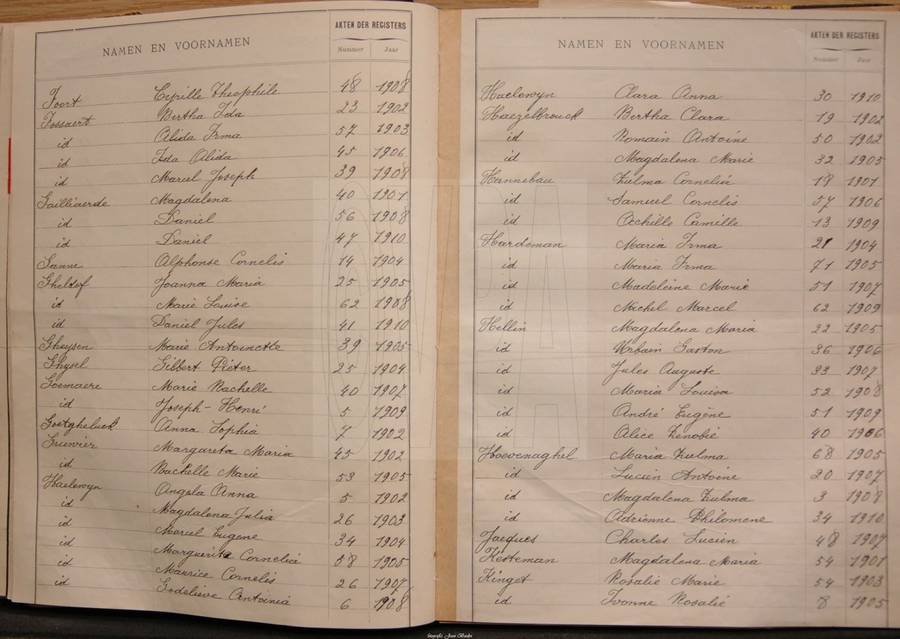 NAMEN EN VOORNAMEN AKTEN DER REGISTERS
Nummer Jaar
Foort Cyrille Theophile 48 1908
Fossaert Bertha Ida 23 1902
id Alida Irma 57 1903
id Ida Alida 45 1906
id Marcel Joseph 39 1908
Gailliaerde Magdalena 40 1901
id Daniel 56 1908
id Daniel 47 1910
Sanne Alphonse Cornelis 14 1904
Gheldof Joanna Maria 25 1905
id Marie Louise 62 1908
id Daniel Jules 41 1910
Gheysen Marie Antoinette 39 1905
Ghysel Gilbert Pieter 25 1904
Goemaere Marie Rachelle 40 1907
id Joseph-Henri 5 1909
Goetgheluck Anna Sophia 7 1902
Grenier Margareta Maria 45 1902
id Rachelle Marie 53 1905
Haelewyn Angela Anna 5 1902
id Magdalena Julia 26 1903
id Marcel Eugene 34 1904
id Marguerite Cornelia 58 1905
id Maurice Cornelis 26 1907
id Godelieve Antoinia 6 1908
NAMEN EN VOORNAMEN AKTEN DER REGISTERS
Nummer Jaar
Haelewyn Clara Anna 30 1910
Haezelbrouck Bertha Clara 19 1902
id Romain Antoine 50 1902
id Magdalena Marie 32 1905
Hannebau Zulma Cornelia 18 1901
id Samuel Cornelis 57 1906
id Achille Camille 13 1909
Hardeman Maria Irma 21 1904
id Maria Irma 71 1905
id Madeleine Marie 51 1907
id Michel Marcel 62 1909
Hellin Magdalena Maria 22 1905
id Urbain Gaston 36 1906
id Jules Auguste 33 1907
id Maria Louisa 52 1908
id André Eugène 51 1909
id Alice Zenobie 40 1906
Hoevenaghel Maria Zulma 68 1905
id Lucien Antoine 20 1907
id Magdalena Zulma 3 1908
id Adrienne Philomene 34 1910
Jacques Charles Lucien 48 1907
Kesteman Magdalena Maria 54 1901
Kinget Rosalie Marie 54 1903
id Ivonne Rosalie 8 1905